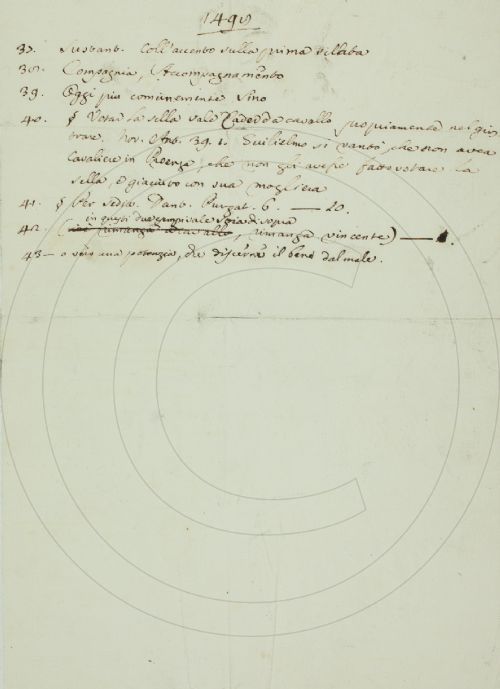 1490
37. Sustant. Coll'accento sulla prima sillaba
38. Compagnia, Accompagnamento
39. Oggi più comunemente Sino
40. § Votar la sella vale Cader da cavallo propriamente nel gios
trare. Nov. Ant. 39. 1. Guilielmo si vantò, che non avea
Cavaliere in Proenza, che non gli avesse fatto votare la
sella, e giaciuto con sua mogliera
41. § Per Sedia. Dant. Purgat. 6. — 20.
in questi due esempi vale Sopra di sopra
42. rimanga a cavallo, rimanga vincente) — 1.
43 — o vero una potenza, che discerne il bene dal male.